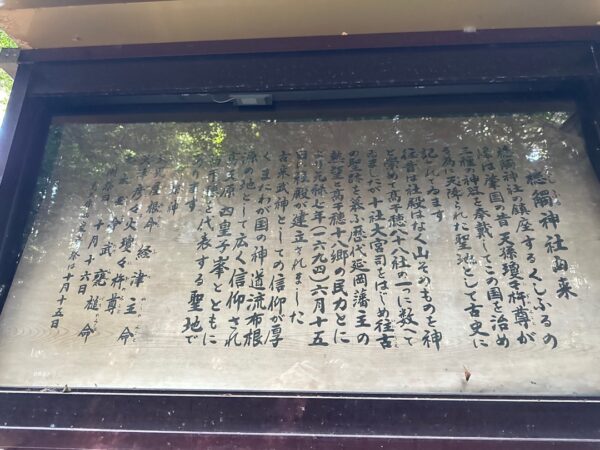 槵觸神社由来
槵觸神社の鎮座するくしふるの
峰は肇国の昔天孫瓊々杵尊が
三種の神器を奉戴してこの国を治め
る為に天降された聖地として古史に
記してゐます
往昔は社殿はなく山そのものを神
と崇めて高千穂八十八社の一つに数へて
ゐましたが十社大宮司をはじめ往古
の聖跡を慕ふ歴代延岡藩主の
熱望と高千穂十八郷の民力とに
より元禄七年(一六九四)六月十五
日社殿が建立されました
古来武神としての信仰が厚
くまたわが国の神道流布根
源の地として広く信仰され
高天原四皇子峯とともに
高千穂を代表する聖地で
あります
祭神
天児屋根命 経津主命
天津彦々火瓊々杵尊
武甕槌命
十月十六日
十月十五日